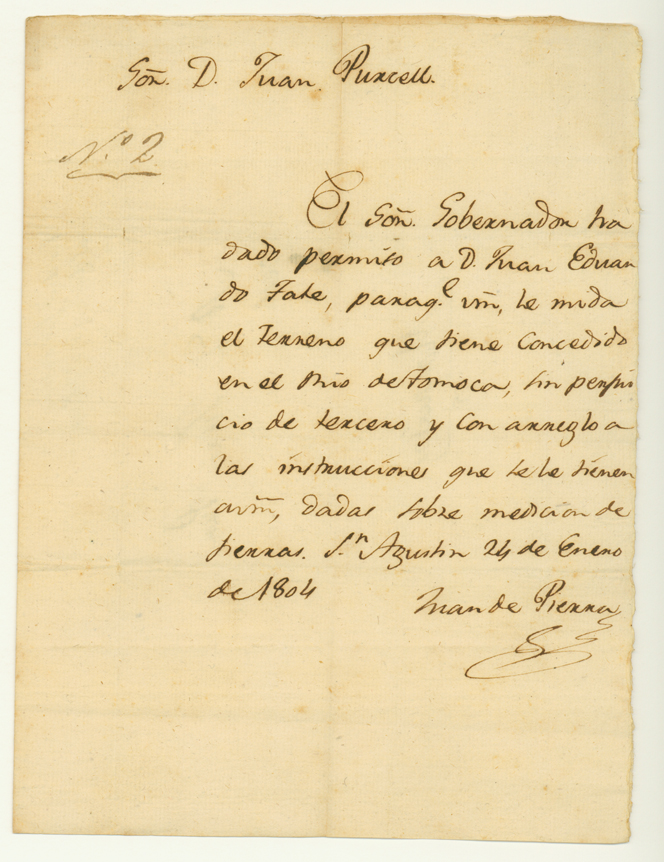 Sōr. D. Juan Purcell.
N.º 2
El Sōr. Gobernador ha
dado permiso a D. Juan Eduar
do Tate, paraq.e vm̄, le mida
el terreno que tiene Concedido
en el Rio de Tomoca, sin perjui
cio de tercero y con arreglo a
las instrucciones que se le tienen
avm̄, dadas sobre medicion de
tierras. S.n Agustin 24 de Enero
de 1804
Juan de Pierra